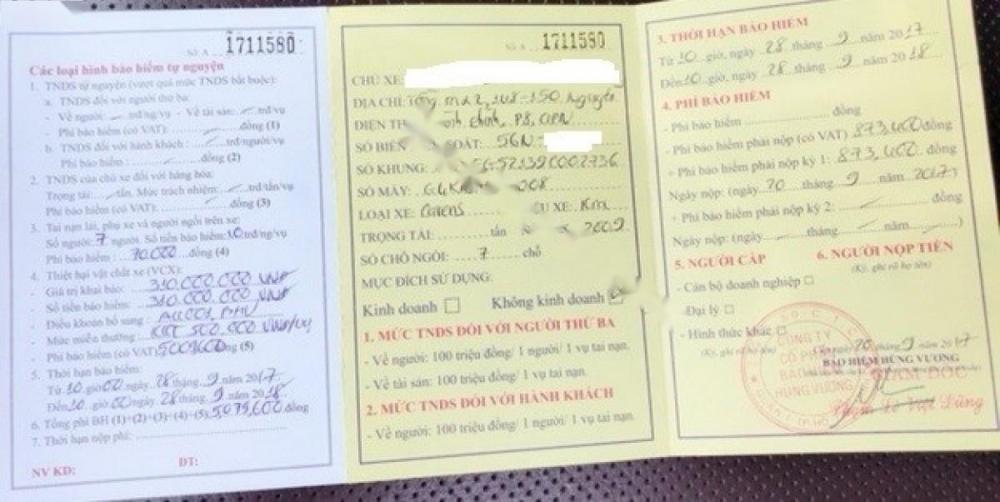 Số A 1711580
Các loại hình bảo hiểm tự nguyện
1. TNDS tự nguyện (vượt quá mức TNDS bắt buộc):
a. TNDS đối với người thứ ba:
- Về người: trđ/ng/vụ - Về tài sản: trđ/vụ
- Phí bảo hiểm (có VAT): đồng (1)
b. TNDS đối với hành khách: trđ/người/vụ
Phí bảo hiểm: đồng (2)
2. TNDS của chủ xe đối với hàng hóa:
Trọng tải: tấn. Mức trách nhiệm: trđ/tấn/vụ
Phí bảo hiểm (có VAT): đồng (3)
3. Tai nạn lái, phụ xe và người ngồi trên xe:
Số người: 7 người. Số tiền bảo hiểm: 10 trđ/ng/vụ
Phí bảo hiểm: 70.000 đồng (4)
4. Thiệt hại vật chất xe (VCX):
- Giá trị khai báo: 310.000.000 VNĐ
- Số tiền bảo hiểm: 310.000.000 VNĐ
- Điều khoản bổ sung:
- Mức miễn thường: 500.000 VNĐ/vụ
- Phí bảo hiểm (có VAT): 5009600 đồng (5)
5. Thời hạn bảo hiểm:
Từ 10 giờ 00 ngày 28 tháng 9 năm 2017
Đến 10 giờ 00 ngày 28 tháng 9 năm 2018
6. Tổng phí BH (1)+(2)+(3)+(4)+(5): 5,079,600 đồng
7. Thời hạn nộp phí:
NV KD: ĐT:
Số A 1711580
CHỦ XE:
ĐỊA CHỈ: Tầng 148-150 Nguyễn
ĐIỆN TH Đình Chính, P8, QPN
SỐ BIỂN SOÁT: 56N-
SỐ KHUNG:
SỐ MÁY: 008
LOẠI XE: Carens U XE: Kia
TRỌNG TẢI: tấn 2009
SỐ CHỖ NGỒI: 7 chỗ
MỤC ĐÍCH SỬ DỤNG:
Kinh doanh Không kinh doanh
1. MỨC TNDS ĐỐI VỚI NGƯỜI THỨ BA
- Về người: 100 triệu đồng/ 1 người/ 1 vụ tai nạn.
- Về tài sản: 100 triệu đồng/ 1 vụ tai nạn.
2. MỨC TNDS ĐỐI VỚI HÀNH KHÁCH
- Về người: 100 triệu đồng/ 1 người/ 1 vụ tai nạn.
3. THỜI HẠN BẢO HIỂM
Từ 10 giờ, ngày 28 tháng 9 năm 2017
Đến 10 giờ, ngày 28 tháng 9 năm 2018
4. PHÍ BẢO HIỂM
- Phí bảo hiểm đồng
- Phí bảo hiểm phải nộp (có VAT) 873,400 đồng
+ Phí bảo hiểm phải nộp kỳ 1: 873,400 đồng
Ngày nộp: (ngày 20 tháng 9 năm 2017)
+ Phí bảo hiểm phải nộp kỳ 2: đồng
Ngày nộp: (ngày tháng năm )
5. NGƯỜI CẤP 6. NGƯỜI NỘP TIỀN
- Cán bộ doanh nghiệp (Ký, ghi rõ họ tên)
- Đại lý
- Hình thức khác
ngày 20 tháng 9 năm 2017
BẢO HIỂM HÙNG VƯƠNG
GIÁM ĐỐC
CÔNG TY
CỔ PH
BẢO
HÙNG VƯƠNG